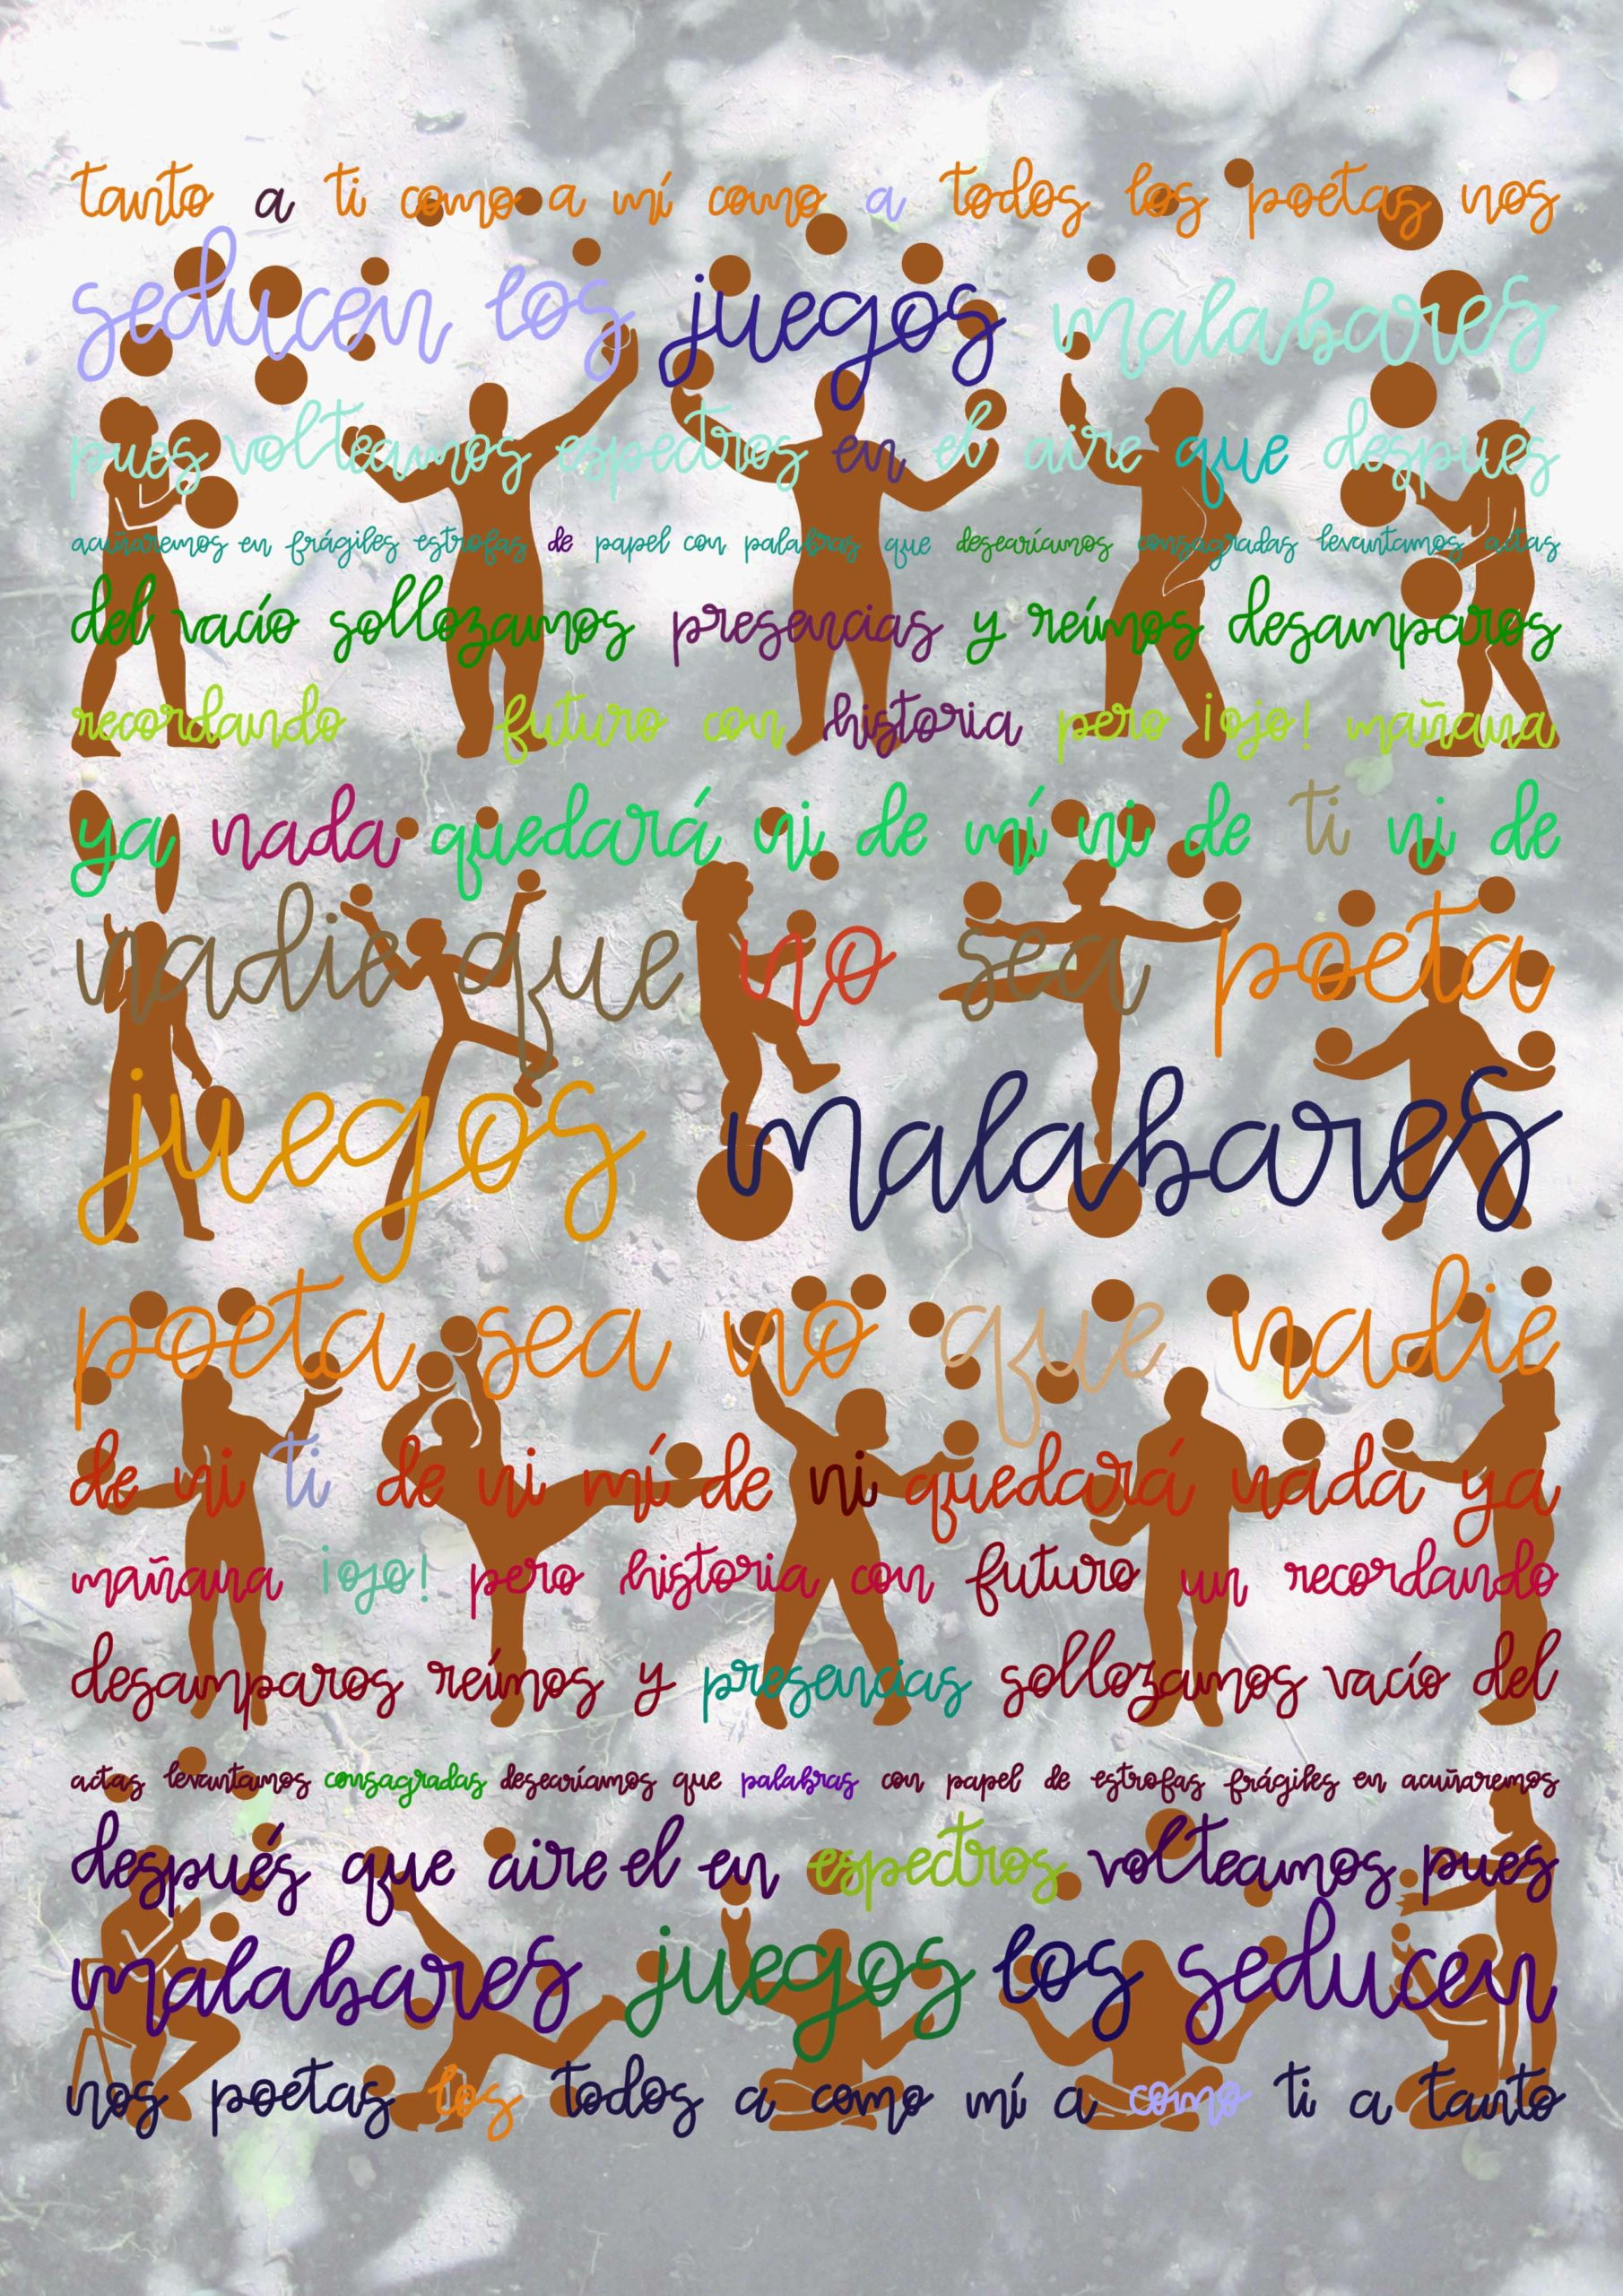 tanto a ti como a mí como a todos los poetas nos
seducen los juegos malabares
pues volteamos espectros en el aire que después
acuñaremos en frágiles estrofas de papel con palabras que desearíamos consagradas levantamos actas
del vacío sollozamos presencias y reímos desamparos
recordando futuro con historia pero ¡ojo! mañana
ya nada quedará ni de mí ni de ti ni de
nadie que no sea poeta
juegos malabares
poeta sea no que nadie
de ni ti de ni mí de ni quedará nada ya
mañana ¡ojo! pero historia con futuro un recordando
desamparos reímos y presencias sollozamos vacío del
actas levantamos consagradas desearíamos que palabras con papel de estrofas frágiles en acuñaremos
después que aire el en espectros volteamos pues
malabares juegos los seducen
nos poetas los todos a como mí a como ti a tanto